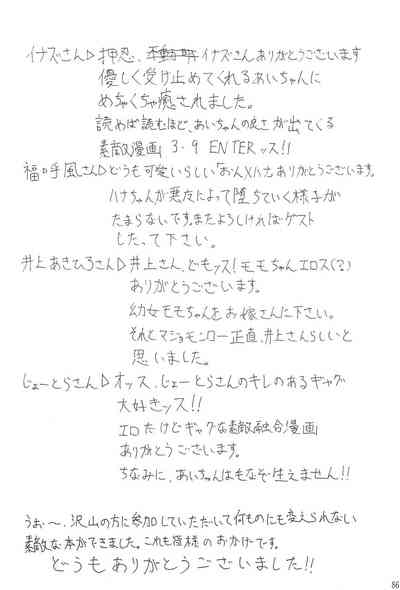 イナズさん▷押忍、イナズさんありがとうございます
優しく受け止めてくれるあいちゃんに
めちゃくちゃ癒されました。
読めば読むほど、あいちゃんの良さが出てくる
素敵漫画 3・9 ENTERッス!!
福呼風さん▷どうも可愛いらしい「おん×ハナ」ありがとうございます。
ハナちゃんが悪友によって堕ちていく様子が
たまらないです。またよろしければゲスト
して下さい。
井上あきひろさん▷井上さん、どもッス!モモちゃんエロス(?)
ありがとうございます。
幼女モモちゃんをお嫁さんに下さい。
それとマジョモンロー正直、井上さんらしいと
思いました。
じょーとらさん▷オッス、じょーとらさんのキレのあるギャグ
大好きッス!!
エロだけどギャグな素敵融合漫画
ありがとうございます。
ちなみに、あいちゃんはもなぞ生えません!!
うぉ〜、沢山の方に参加していただいて何ものにも変えられない
素敵な本ができました。これも皆様のおかげです。
どうもありがとうございました!!
86